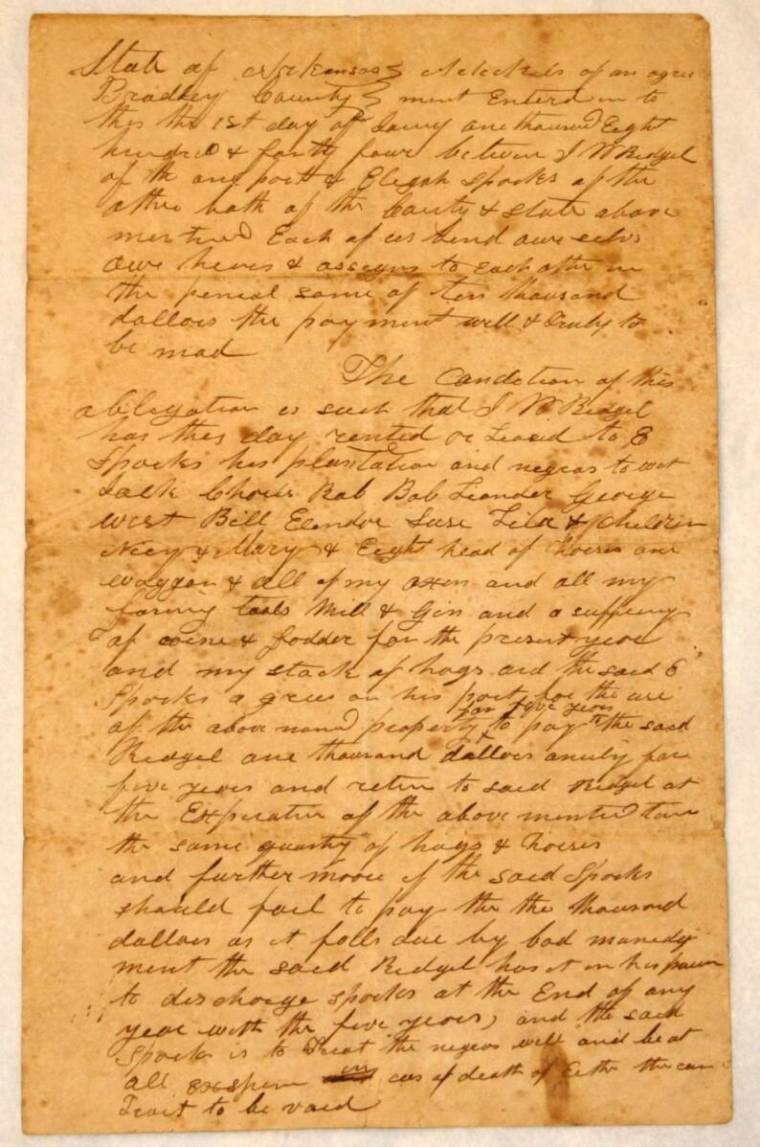 State of Arkansas } Articles of an agree
Bradley County } ment Enterd in to
this the 1st day of Janry one thousand Eight
hundred & forth four between J W Ridgel
of th one part & Elijah Sparks of the
othr both of the County & State above
mentnd Each of us bind owr selvs
owr heirs & assigns to Each othr in
the penal some of ten thousand
dollars the payment will & truly to
be mad
The Condition of this
obligation is such that J W Ridgel
has this day rented or Leasd to E
Sparks his plantation and negros to wit
Jack Bob Leander George
West Bill Elendor Suse Lila & children
& Mary & Eight head of horses one
waggon & all of my oxen and all my
farmg tools Mill & Gin and a
of corne & fodder for the present year
and my stock of hogs and the said E
Sparks agrees on his part for the use
for five years
of the above namd property to pay the said
Ridgel one thousand dollars for
five years and return to said Ridgel at
the of the above time
the same quantity of hogs & horses
and further moore if the said Sparks
should fail to pay the the thousand
dollars as it falls due by bad manedg
ment the said Ridgel has it in his power
to discharge Sparks at the End of any
year with the five years, and the said
Sparks is to treat the negros well and be at
all in cas of death of Eithr the con
Tract to be void